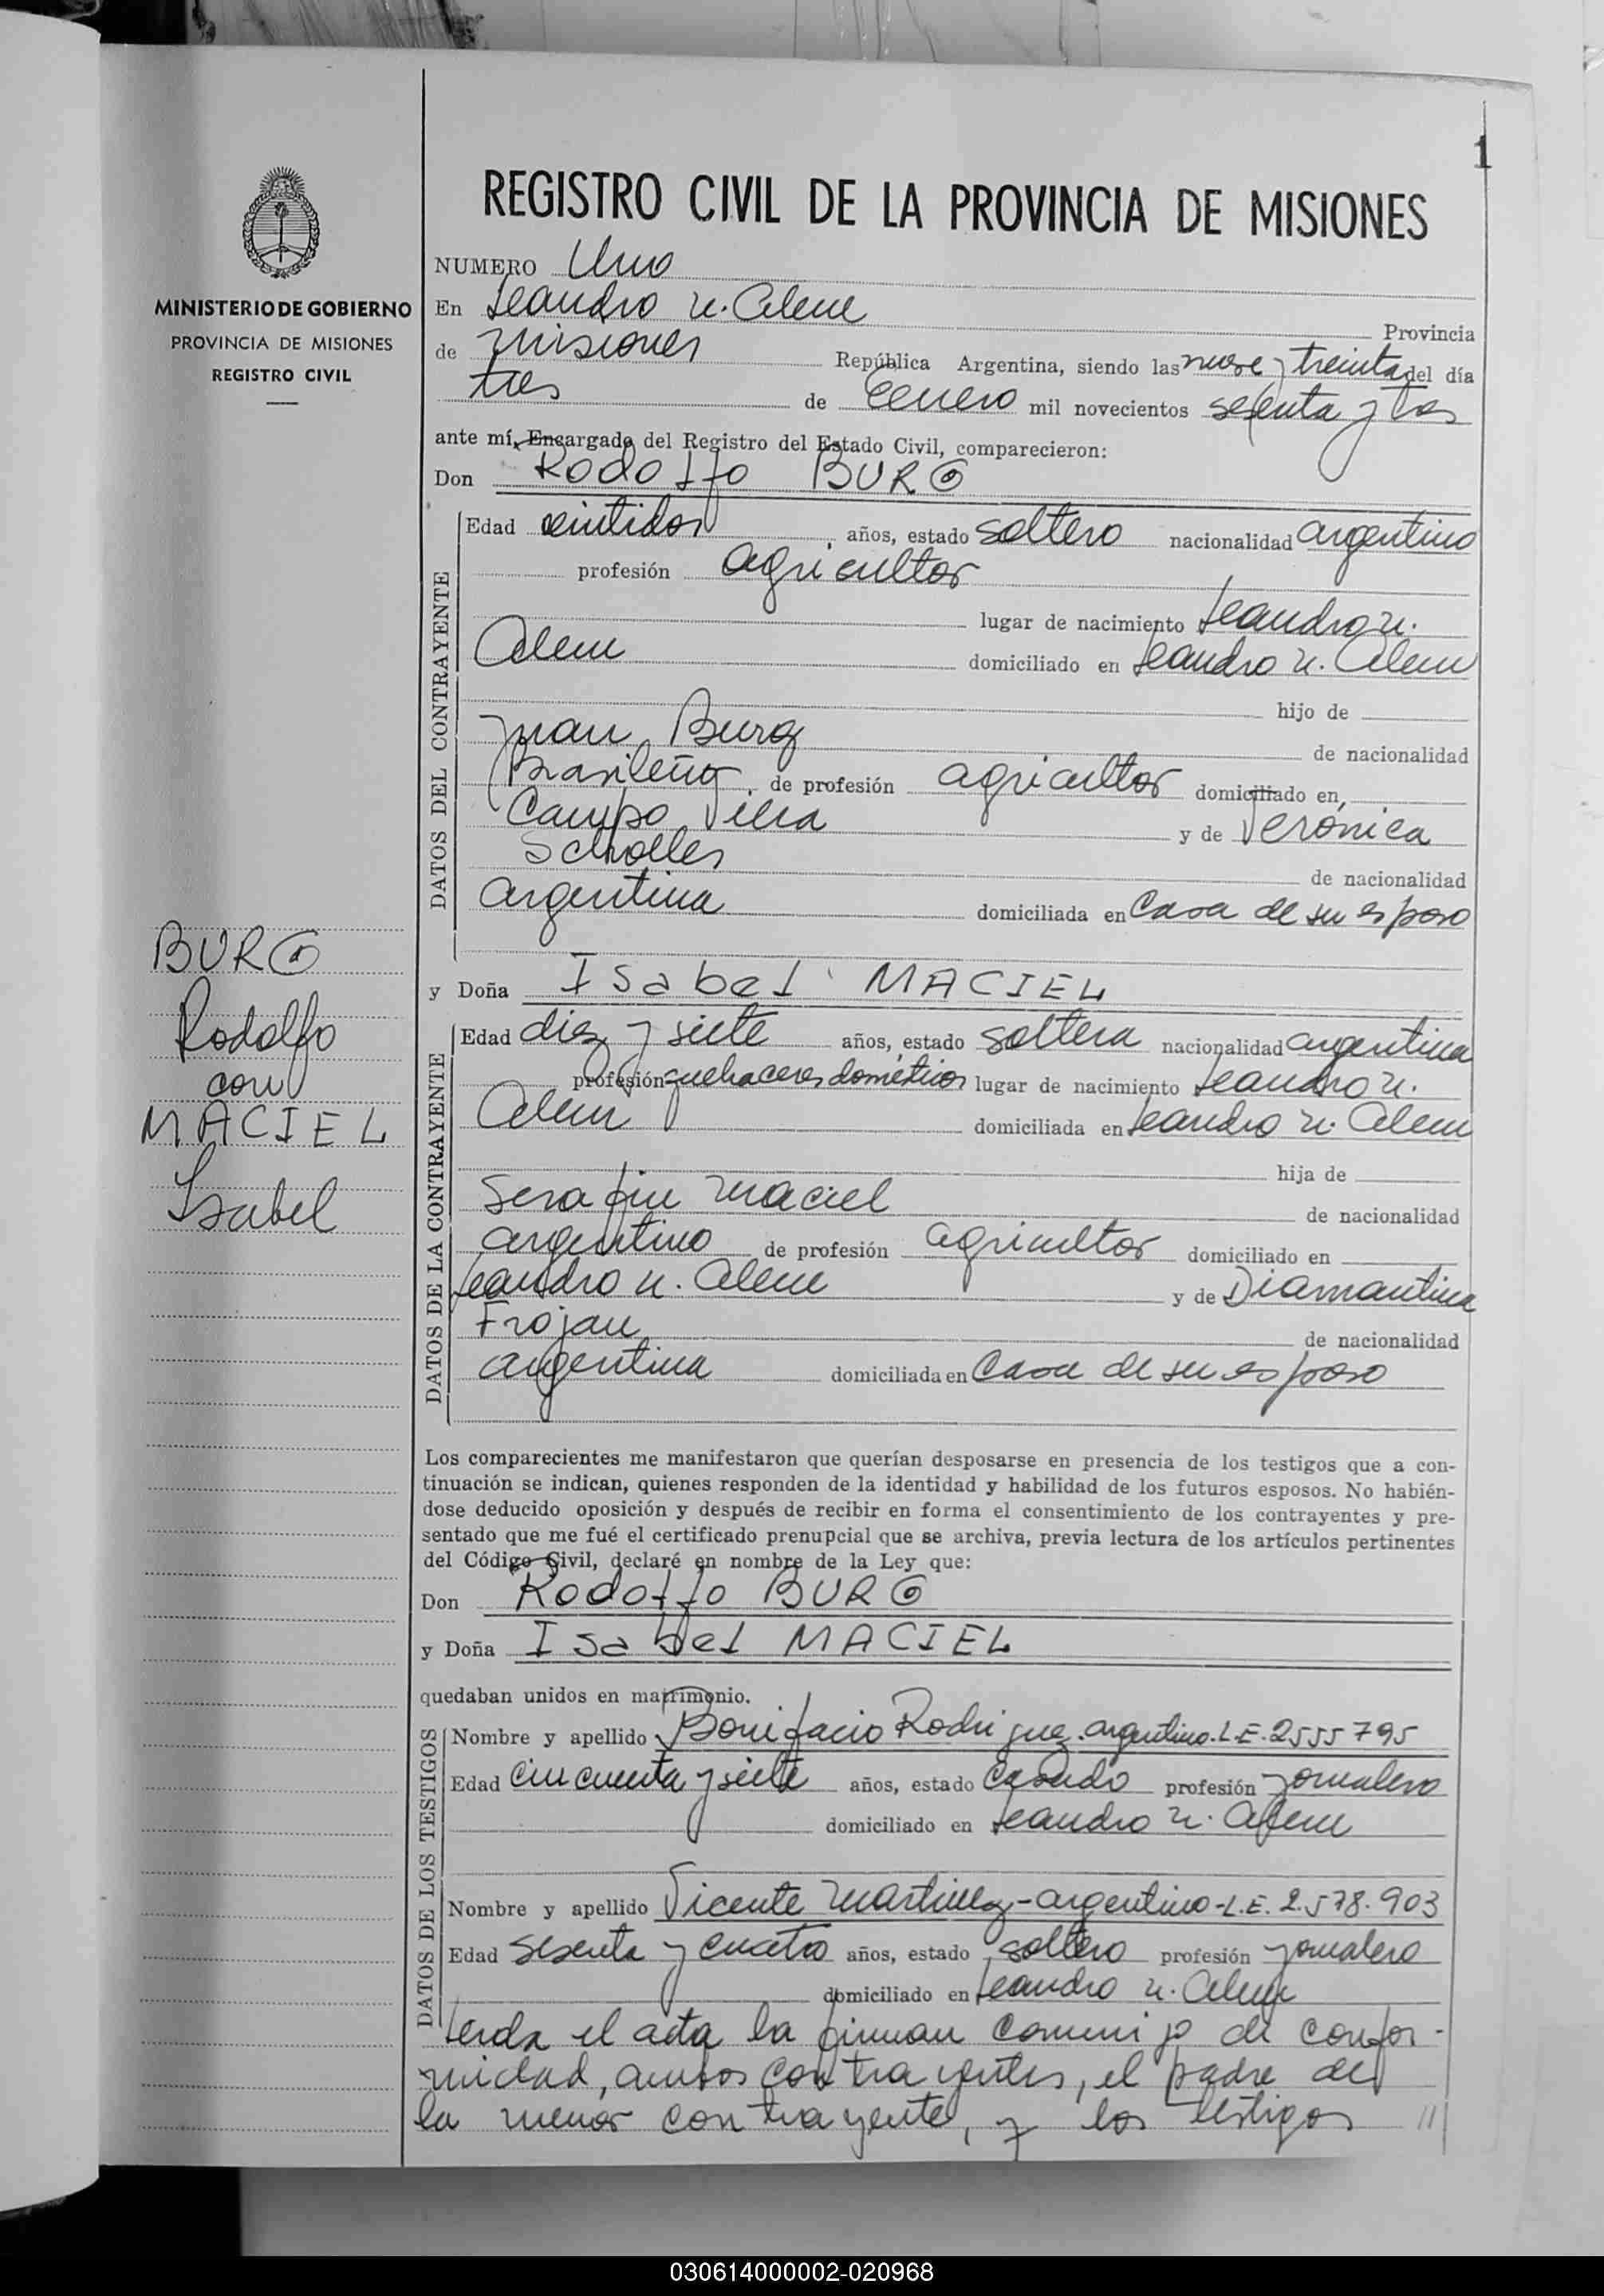 1
REGISTRO CIVIL DE LA PROVINCIA DE MISIONES
MINISTERIO DE GOBIERNO
PROVINCIA DE MISIONES
REGISTRO CIVIL
NUMERO Uno
En Leandro N. Alem Provincia
de Misiones República Argentina, siendo las nueve y treinta del día
tres de Enero mil novecientos setenta y dos
ante mí, Encargado del Registro del Estado Civil, comparecieron:
Don Rodolfo BURG
DATOS DEL CONTRAYENTE
Edad veintidos años, estado soltero nacionalidad argentino
profesión agricultor
lugar de nacimiento Leandro N.
Alem domiciliado en Leandro N. Alem
hijo de
Juan Burg de nacionalidad
Brasileño de profesión agricultor domiciliado en
Campo Viera y de Veronica
Scholles de nacionalidad
argentina domiciliada en Casa de su esposo
BURG
Rodolfo
con
MACIEL
Isabel
y Doña Isabel MACIEL
DATOS DE LA CONTRAYENTE
Edad diez y siete años, estado soltera nacionalidad argentina
profesión quehaceres domésticos lugar de nacimiento Leandro N.
Alem domiciliada en Leandro N. Alem
hija de
Serafin Maciel de nacionalidad
argentino de profesión agricultor domiciliado en
Leandro N. Alem y de Diamantina
Frojan de nacionalidad
argentina domiciliada en Casa de su esposo
Los comparecientes me manifestaron que querían desposarse en presencia de los testigos que a con-
tinuación se indican, quienes responden de la identidad y habilidad de los futuros esposos. No habién-
dose deducido oposición y después de recibir en forma el consentimiento de los contrayentes y pre-
sentado que me fué el certificado prenupcial que se archiva, previa lectura de los artículos pertinentes
del Código Civil, declaré en nombre de la Ley que:
Don Rodolfo BURG
y Doña Isabel MACIEL
quedaban unidos en matrimonio.
DATOS DE LOS TESTIGOS
Nombre y apellido Bonifacio Rodriguez. argentino. L.E. 2555795
Edad cincuenta y siete años, estado casado profesión jornalero
domiciliado en Leandro N. Alem
Nombre y apellido Vicente Martinez - argentino - L.E. 2.578.903
Edad sesenta y cuatro años, estado soltero profesión jornalero
domiciliado en Leandro N. Alem
Leida el acta la firman conmigo de confor-
midad, ambos contrayentes, el padre de
la menor contrayente, y los testigos //
030614000002-020968